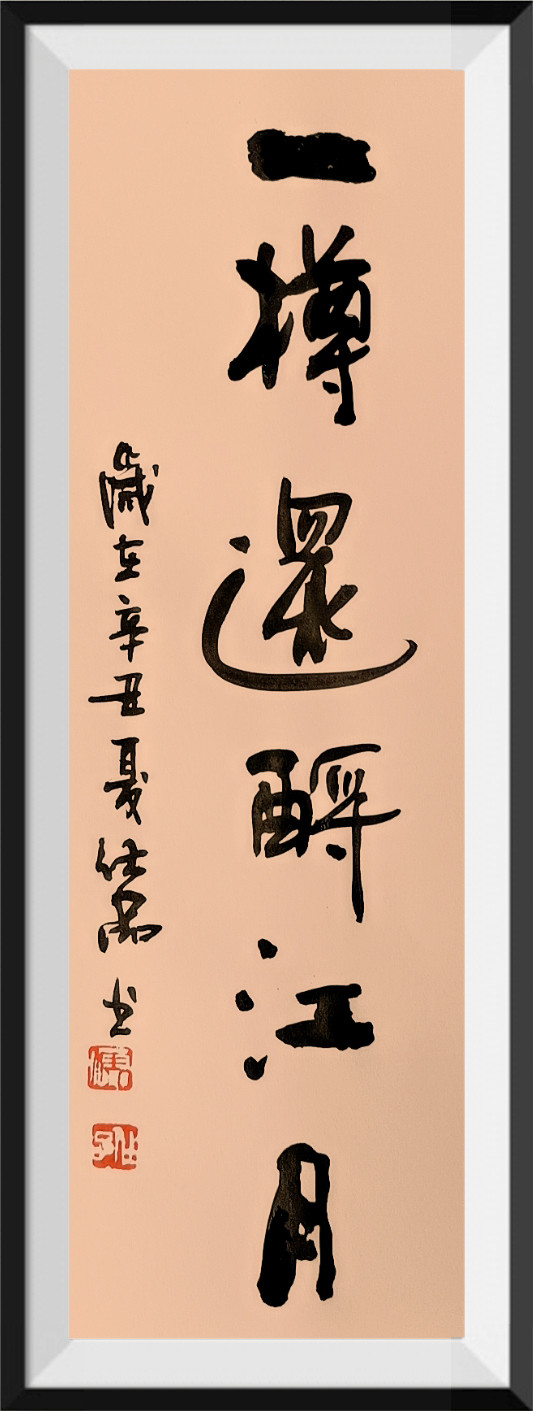 一樽還酹江月
歲在辛丑夏仕书